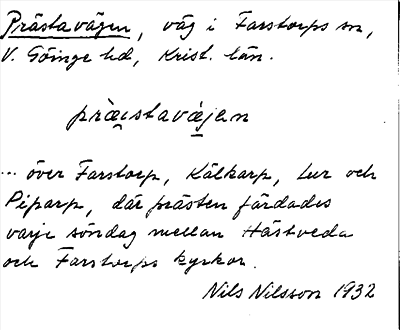 Prästavägen, väg i Farstorps sn,
V. Göinge hd, Krist. län.
præ̀stavæ̱jen
... över Farstorp, Kälkarp, Lur och
Piparp, där prästen färdades
varje söndag mellan Hästveda
och Farstorps kyrkor.
Nils Nilsson 1932